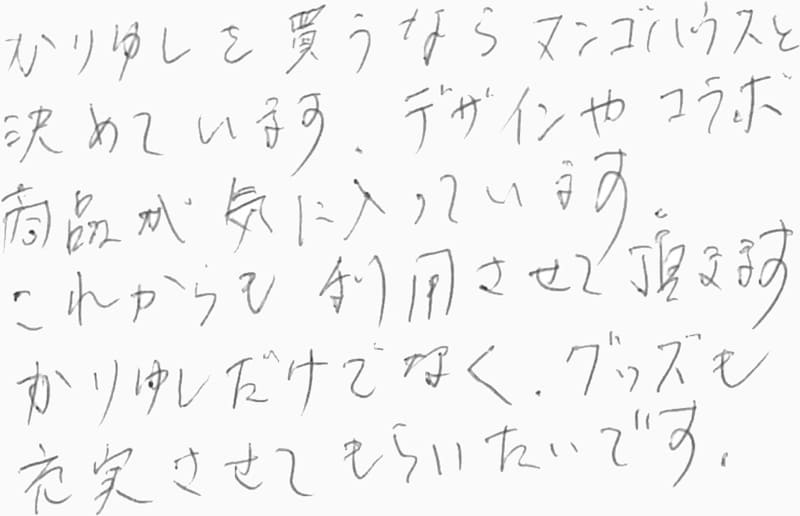 かりゆしを買うならマンゴハウスと
決めています、デザインやコラボ
商品が気に入っています。
これからも利用させて頂きます
かりゆしだけでなく、グッズも
充実させてもらいたいです。